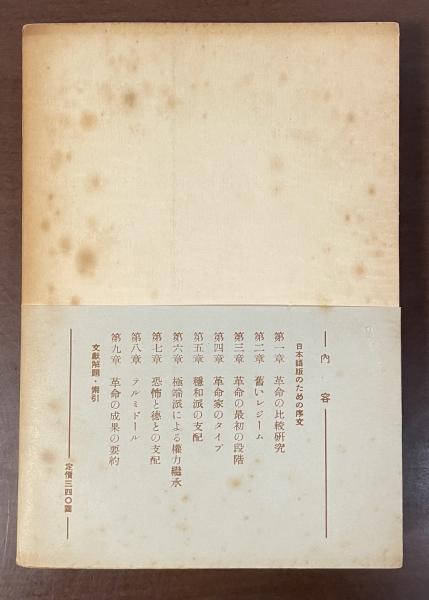 内容
日本語版のための序文
第一章 革命の比較研究
第二章 舊いレジーム
第三章 革命の最初の段階
第四章 革命家のタイプ
第五章 穩和派の支配
第六章 極端派による權力繼承
第七章 恐怖と德との支配
第八章 テルミドール
第九章 革命の成果の要約
文獻解題・索引
定價三四〇圓